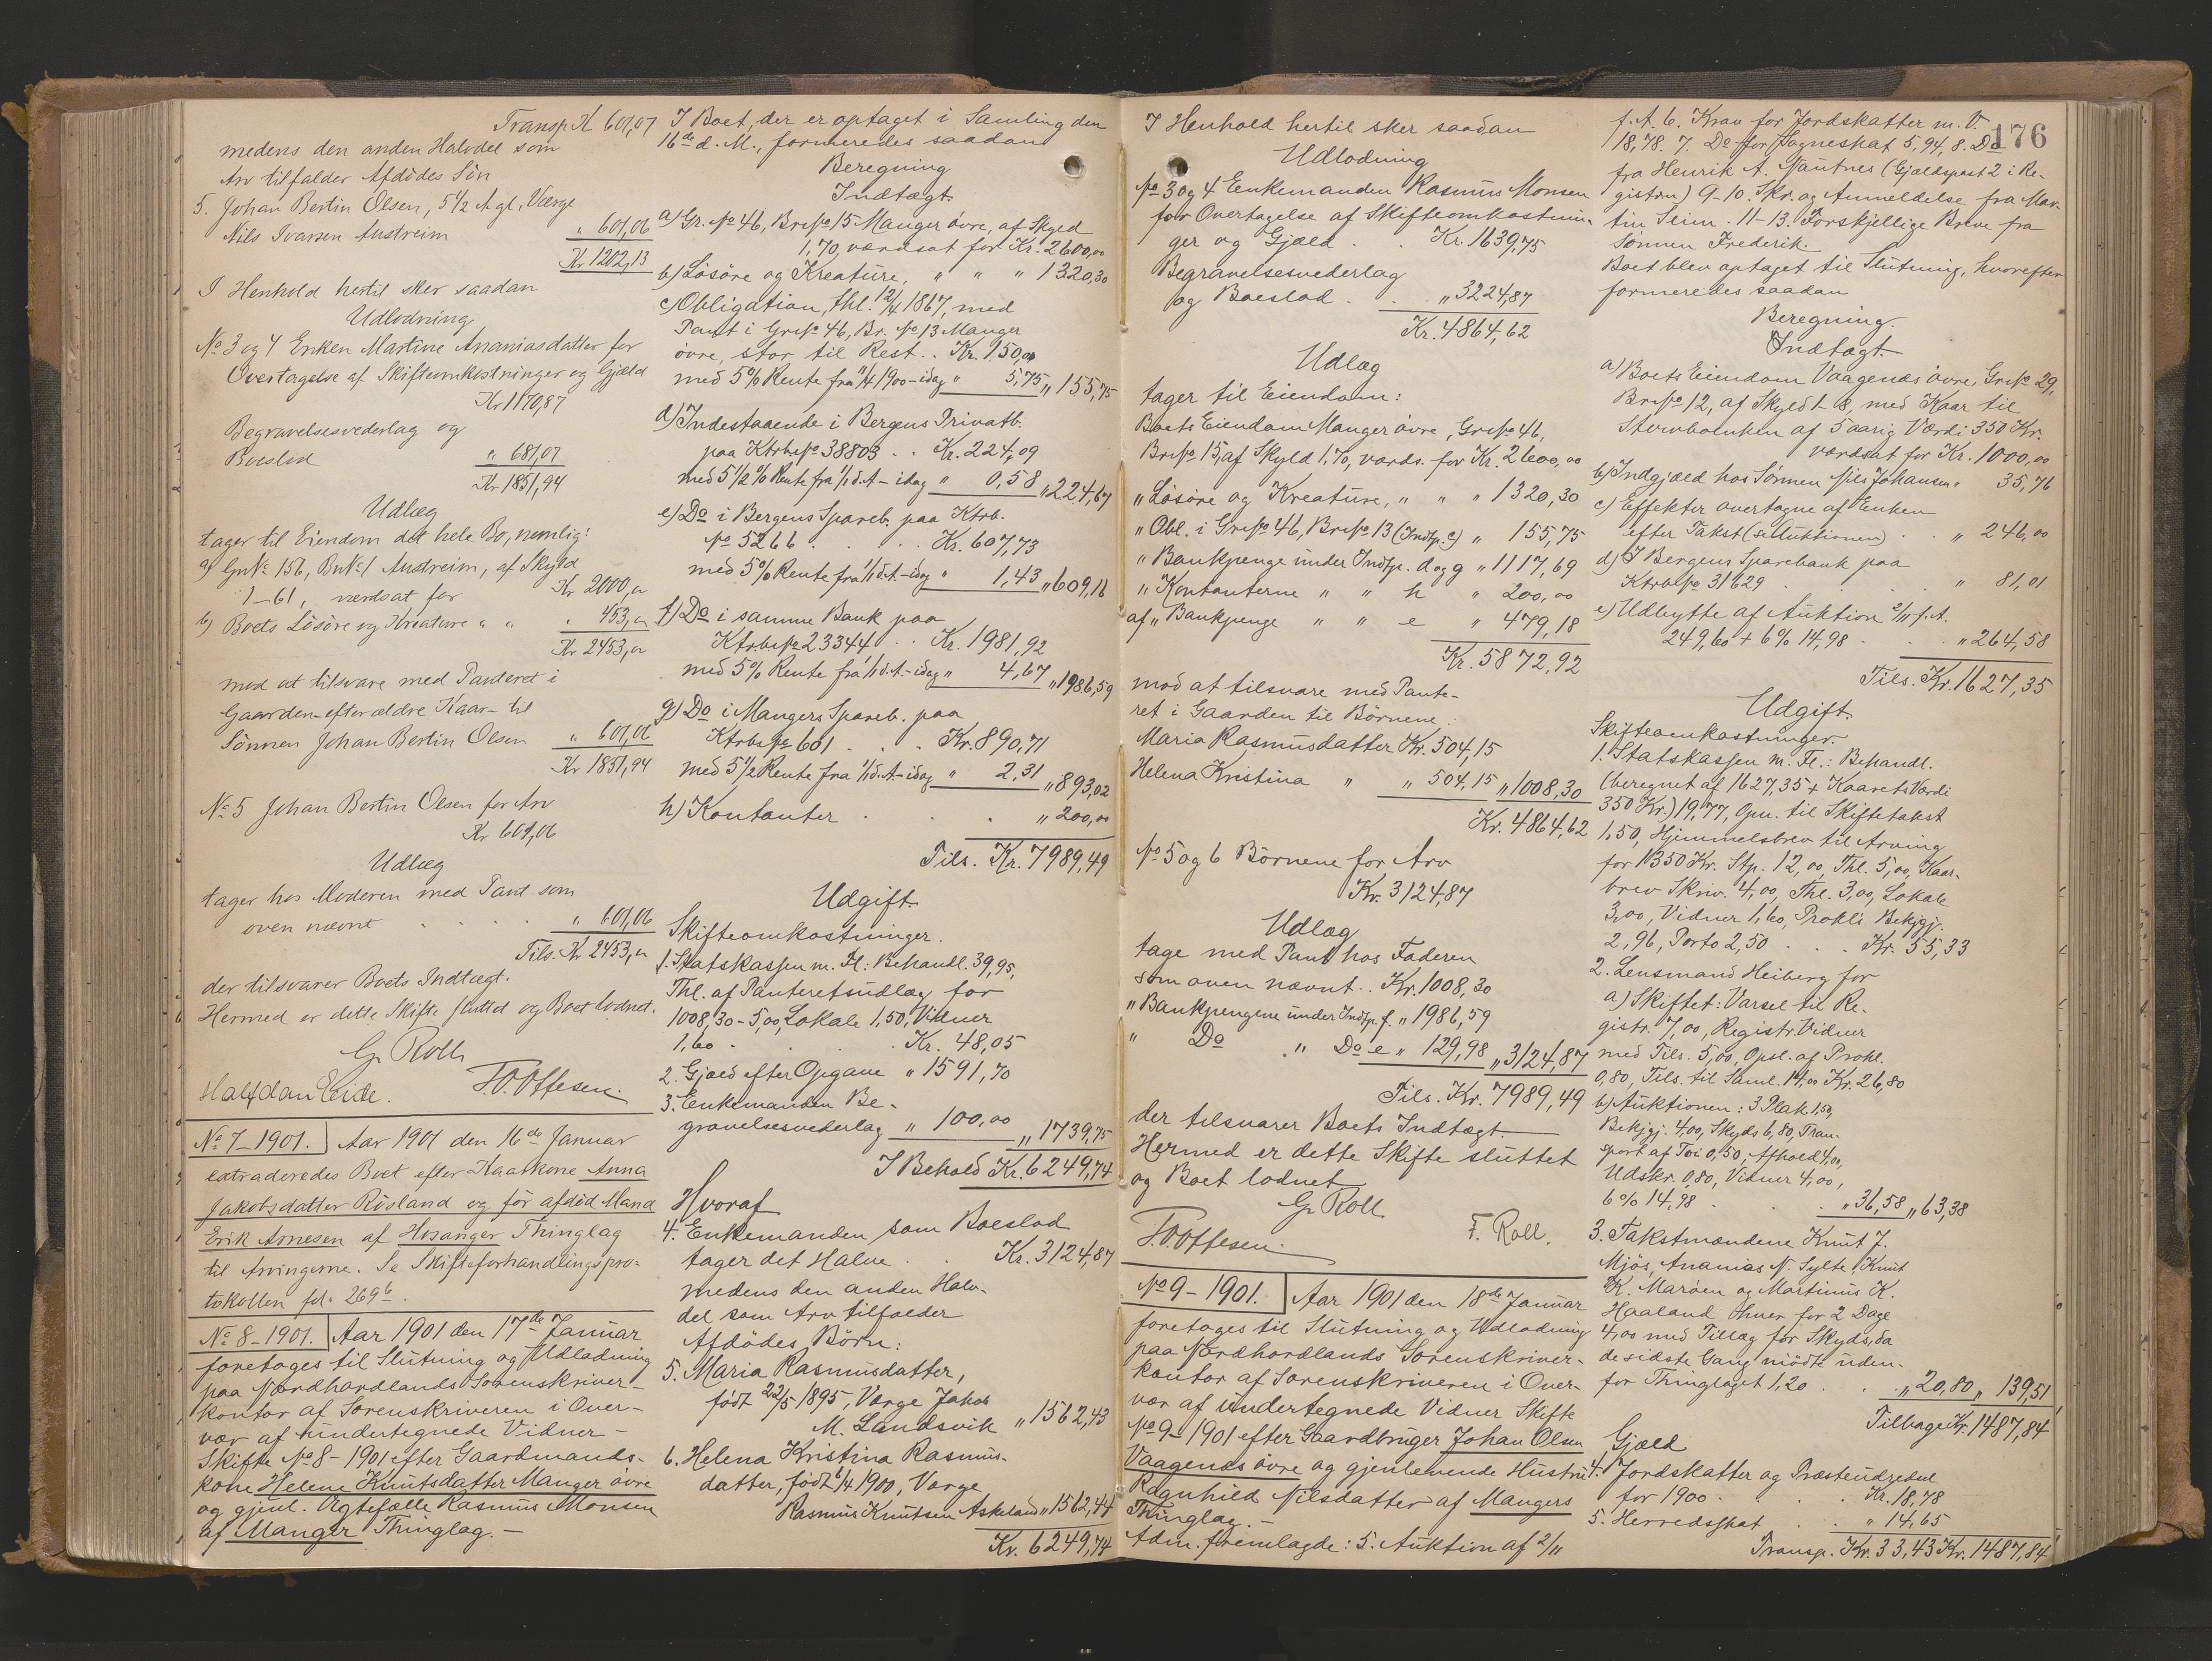 Transp. Kr 601,07
medens den anden Halvdel som
Arv tilfalder Afdödes Sön
5. Johan Bertin Olsen, 5 1/2 A. gl., Værge
Nils Ivarsen Austreim " 601,06
Kr 1202,13
I Henhold hertil sker saadan
Udlodning
No 3 og 4 Enken Martine Ananiasdatter for
Overtagelse af Skifteomkostninger og Gjæld
Kr 1170,87
Begravelsesvederlag og
Boeslod " 681,07
Kr 1851,94
Udlæg
tager til Eiendom det hele Bo, nemlig:
a) GNr. 156, BNr. 1 Austreim, af Skyld
1-61, værdsat for Kr 2000,00
b) Boets Lösöre og Kreature " " " 453,00
Kr 2453,00
mod at tilsvare med Panteret i
Gaarden - efter ældre Kaar - til
Sönnen Johan Bertin Olsen " 601,06
Kr 1851,94
No 5 Johan Bertin Olsen for Arv
Kr 601,06
Udlæg
tager hos Moderen med Pant som
oven nævnt . . . . " 601,06
Tils. Kr 2453,00
der tilsvarer Boets Indtægt.
Hermed er dette Skifte sluttet og Boet lodnet.
G. Roll
Halfdan Eide. F.O. Offesen.
No 7-1901. Aar 1901 den 16de Januar
extraderedes Boet efter Kaarkone Anna
Jakobsdatter Risland og för afdöd Mand
Erik Arnesen af Hosanger Thinglag
til Arvingerne. Se Skifteforhandlingspro-
tokollen fol. 269b.
No 8-1901. Aar 1901 den 17de Januar
foretoges til Slutning og Udlodning
paa Nordhordlands Sorenskriver-
kontor af Sorenskriveren i Over-
vær af undertegnede Vidner -
Skifte No 8-1901 efter Gaardmands-
kone Helene Knutsdatter Manger övre
og gjenl. Ægtefælle Rasmus Monsen
af Manger Thinglag. -
I Boet, der er optaget i Samling den
16de d. M., formeredes saadan
Beregning
Indtægt.
a) Gr. No 46, Br. No 15 Manger övre, af Skyld
1,70, værdsat for Kr. 2600,00
b) Lösöre og Kreature, " " " 1320,30
c) Obligation, thl. 12/4 1867, med
Pant i Gr. No 46, Br. No 13 Manger
övre, stor til Rest . . Kr. 150,00
med 5% Rente fra 11/4 1900 - idag " 5,75 " 155,75
d) Indestaaende i Bergens Privatb.
paa Ktrb. No 38803 . . Kr. 224,09
med 5 1/2 % Rente fra 1/1 d. A - idag " 0,58 " 224,67
e) Do i Bergens Spareb. paa Ktrb.
No 5266 . . . . Kr. 607,73
med 5% Rente fra 1/1 d. A. - idag " 1,43 " 609,16
f) Do i samme Bank paa
Ktrb. No 23344 . . Kr. 1981,92
med 5% Rente fra 1/1 d. A. - idag " 4,67 " 1986,59
g) Do i Mangers Spareb. paa
Ktrb. No 601 . . . Kr. 890,71
med 5 1/2 Rente fra 1/1 d. A. - idag " 2,31 " 893,02
h) Kontanter . . . " 200,00
Tils. Kr. 7989,49
Udgift.
Skifteomkostninger.
1. Statskassen m. Fl: Behandl. 39,95,
Thl. af Panteretsudlæg for
1008,30 - 5,00, Lokale 1,50, Vidner
1,60 . . . . Kr. 48,05
2. Gjæld efter Opgave " 1591,70
3. Enkemanden Be-
gravelsesvederlag " 100,00 " 1739,75
I Behold Kr. 6249,74
Hvoraf
4. Enkemanden som Boeslod
tager det Halve . . Kr. 3124,87
medens den anden Halv-
del som Arv tilfalder
Afdödes Börn:
5. Maria Rasmusdatter,
födt 22/5 1895, Værge Jakob
M. Landsvik " 1562,43
6. Helena Kristina Rasmus-
datter, födt 6/4 1900, Værge
Rasmus Knutsen Askeland " 1562,44
Kr. 6249,74
I Henhold hertil sker saadan
Udlodning
No 3 og 4 Enkemanden Rasmus Monsen
for Overtagelse af Skifteomkostnin-
ger og Gjæld . . Kr. 1639,75
Begravelsesvederlag
og Boeslod . . " 3224,87
Kr. 4864,62
Udlæg
tager til Eiendom:
Boets Eiendom Manger övre, Gr. No 46,
Br. No 15, af Skyld 1,70, værds. for Kr. 2600,00
" Lösöre og Kreature, " " " 1320,30
" Obl. i Gr. No 46, Br. No 13 (Indtp. c) " 155,75
" Bankpenge under Indtp. d og g " 1117,69
" Kontanterne " " h " 200,00
af " Bankpenge " " e " 479,18
Kr. 5872,92
mod at tilsvare med Pante-
ret i Gaarden til Börnene:
Maria Rasmusdatter Kr. 504,15
Helena Kristina " " 504,15 " 1008,30
Kr. 4864,62
No 5 og 6 Börnene for Arv
Kr. 3124,87
Udlæg
tage med Pant hos Faderen
som oven nævnt . . Kr. 1008,30
" Bankpengene under Indtp. f. " 1986,59
" Do " Do e " 129,98 " 3124,87
Tils. Kr. 7989,49
der tilsvarer Boets Indtægt.
Hermed er dette Skifte sluttet
og Boet lodnet
G. Roll
F.O. Offesen. F. Roll.
No 9-1901. Aar 1901 den 18de Januar
foretoges til Slutning og Udlodning
paa Nordhordlands Sorenskriver-
kontor af Sorenskriveren i Over-
vær af undertegnede Vidner Skifte
No 9-1901 efter Gaardbruger Johan Olsen
Vaagenes övre og gjenlevende Hustru
Ragnhild Nilsdatter af Mangers
Thinglag. -
Adm. fremlagde: 5. Auktion af 2/11
176
f. A. 6. Krav for Jordskatter m. V.
18,78. 7. Do for Sogneskat 5,94, 8. Do
fra Henrik A. Nautnes (Gjældspost 2 i Re-
gistr.) 9-10. Skr. og Anmeldelse fra Mar-
tin Seim. 11-13. Forskjellige Breve fra
Sönnen Frederik.
Boet blev optaget til Slutning, hvorefter
formeredes saadan
Beregning.
Indtægt.
a) Boets Eiendom Vaagenes övre, Gr. No 29,
Br. No 12, af Skyld 1-8, med Kaar til
Stervboenken af 5aarig Værdi 350 Kr.
værdsat for Kr. 1000,00
b) Indgjæld hos Sönnen Nils Johansen " 35,76
c) Effekter overtagne af Enken
efter Takst (se Auktionen) . . " 246,00
d) I Bergens Sparebank paa
Ktrb. No 31629 . . . " 81,01
e) Udbytte af Auktion 2/11 f. A.
249,60 + 6% 14,98 . . " 264,58
Tils. Kr. 1627,35
Udgift.
Skifteomkostninger.
1. Statskassen m. Fl.: Behandl.
(beregnet af 1627,35 + Kaarets Værdi
350 Kr.) 19,77, Opn. til Skiftetakst
1,50, Hjemmelsbrev til Arving
for 1350 Kr. Stp. 12,00, Thl. 5,00, Kaar-
brev Skriv. 4,00, Thl. 3,00, Lokale
3,00, Vidner 1,60, Prokl's Bekjgj.
2,96, Porto 2,50 . . . Kr. 55,33
2. Lensmand Heiberg for
a) Skiftet: Varsel til Re-
gistr. 7,00, Registr. Vidner
med Tils. 5,00, Opsl. af Prokl.
0,80, Tils. til Saml. 14,00 Kr. 26,80
b) Auktionen: 3 Plak. 1,50,
Bekjgj. 4,00, Skyds 6,80, Tran-
sport af Töi 0,50, Afhold 4,00,
Udskr. 0,80, Vidner 4,00,
6% 14,98 . . . " 36,58 " 63,38
3. Takstmændene Knut J.
Mjös, Ananias N. Sylte, Knut
K. Maröen og Martinus K.
Haaland hver for 2 Dage
4,00 med Tillæg for Skyds, da
de sidste Gang mödte uden-
for Thinglaget 1,20 . . " 20,80 " 139,51
Tilbage Kr. 1487,84
Gjæld
4. Jordskatter og Præsteudredsel
for 1900 . . . . Kr. 18,78
5. Herredsskat . . " 14,65
Transp. Kr. 33,43 Kr. 1487,84